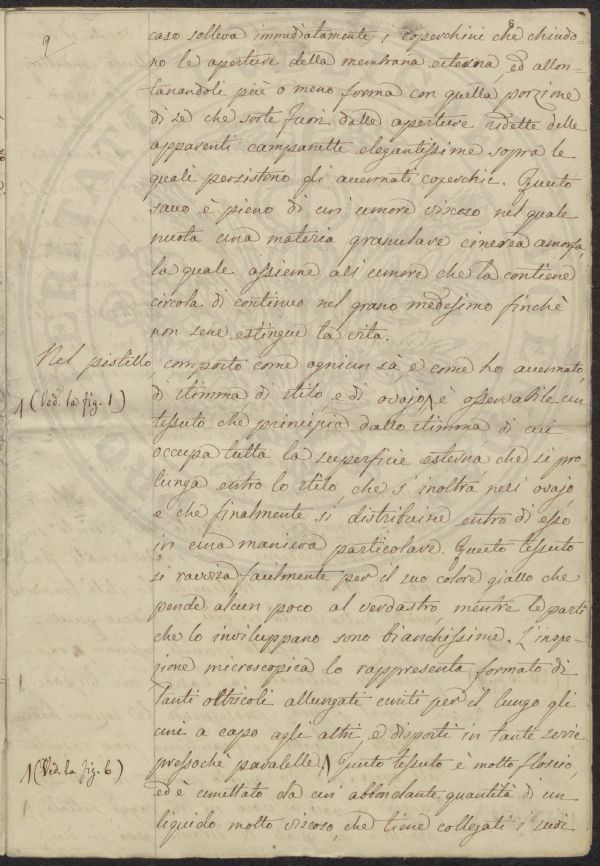 9
8
caso solleva immediatamente i coperchini che chiudo-
no le aperture della membrana esterna, ed allon-
tanandoli più o meno forma con quella porzione
di sè che sorte fuori dalle aperture ridette delle
apparenti campanette elegantissime sopra le
quali persistono gli accennati coperchi. Questo
sacco è pieno di un umore viscoso nel quale
nuota una materia granulare cinerea amorfa,
la quale assieme all'umore che la contiene
circola di continuo nel grano medesimo finchè
non sene estingue la vita.
Nel pistillo composto come ognun sà e come ho accennato
di stimma di stilo e di ovajo, è osservabile un
1 (Ved. la fig. 1)
tessuto che principia dallo stimma di cui
occupa tutta la superficie esterna che si pro-
lunga entro lo stilo, che s'inoltra nell'ovajo,
e che finalmente si distribuisce entro di esso
in una maniera particolare. Questo tessuto
si ravvisa facilmente per il suo colore giallo che
pende alcun poco al verdastro, mentre le parti
che lo inviluppano sono bianchissime. L'inspe-
zione microscopica lo rappresenta formato di
tanti otricoli allungati uniti per il lungo gli
uni a capo agli altri e disposti in tante serie
pressochè paralelle. Questo tessuto è molto floscio,
1 (Ved. la fig. 6.)
ed è umettato da un'abbondante quantità di un
liquido molto viscoso, che tiene collegati i suoi